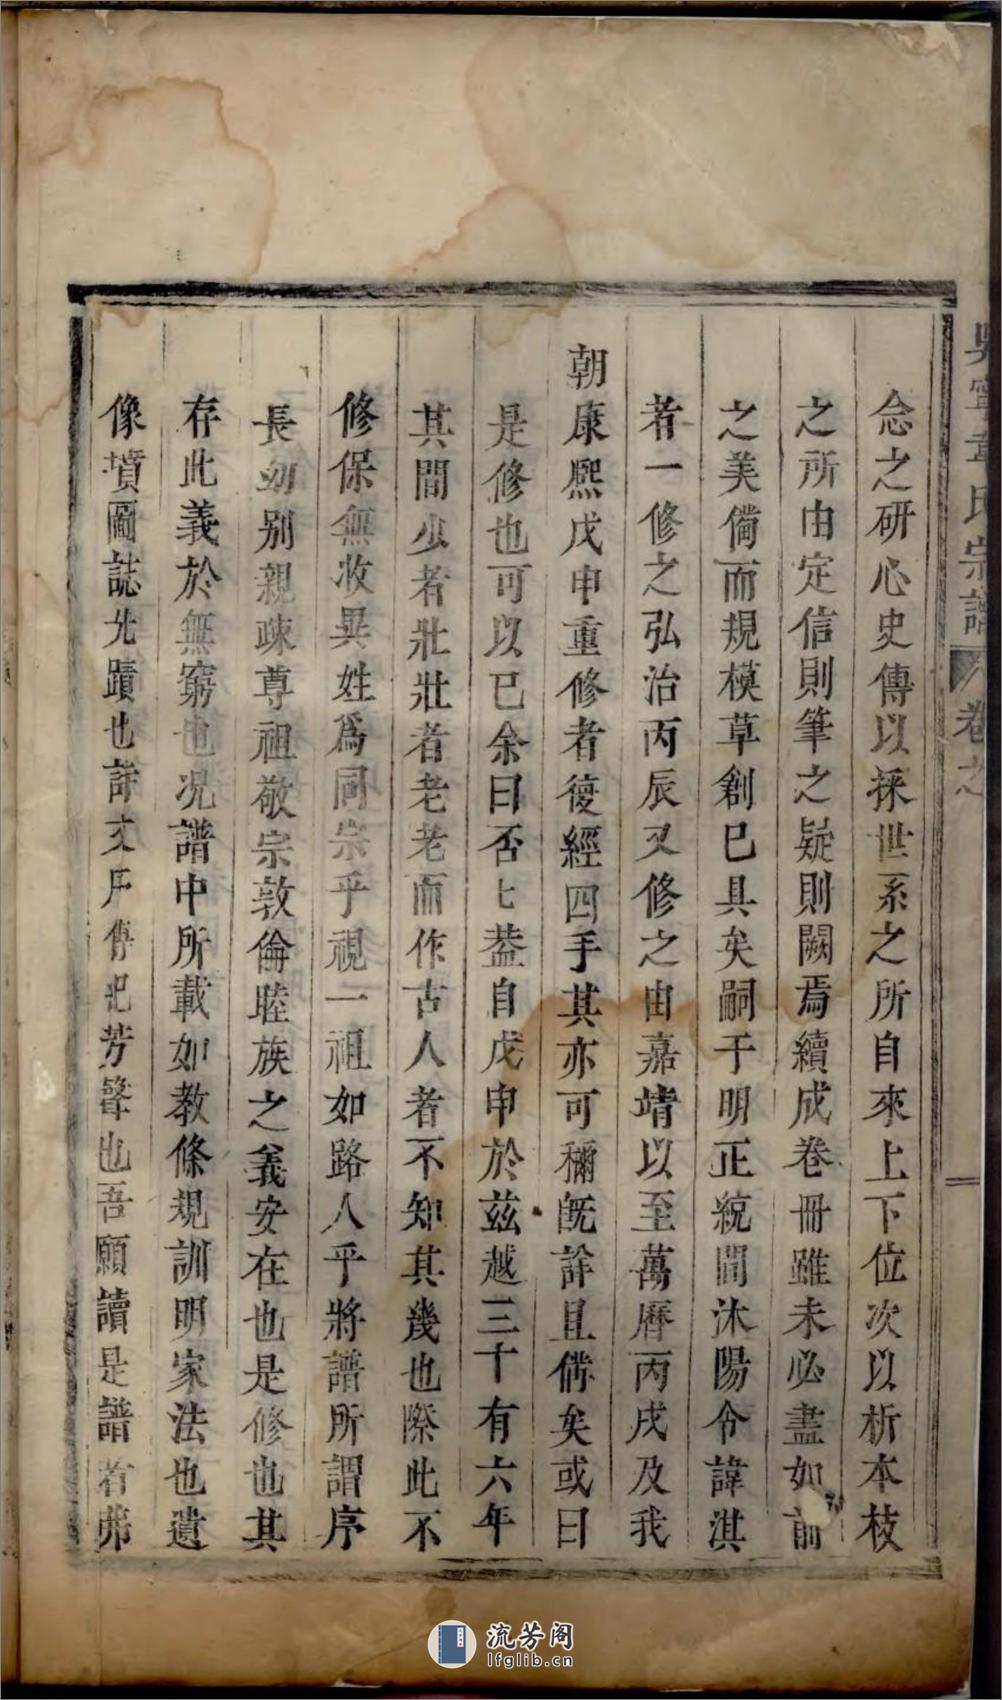 念之研心史傳以採世系之所自來上下位次以析本枝
之所由定信則筆之疑則闕焉續成卷冊雖未必盡如前
之美備而規模草創已具矣嗣于明正統間沐陽令諱淇
者一修之弘治丙辰又修之由嘉靖以至萬曆丙戌及我
朝康熙戊申重修者復經四手其亦可稱既詳且備矣或曰
是修也可以已余曰否七葢自戊申於兹越三十有六年
其間少者壯壯者老老而作古人者不知其幾也際此不
修保無收異姓爲同宗乎視一祖如路人乎將譜所謂序
長幼别親疎尊祖敬宗敦倫睦族之義安在也是修也其
存此義於無窮也况譜中所載如教條規訓明家法也遺
像墳圖誌先蹟也詩文序傳記芳聲也吾願讀是譜者弗
吳寧章氏宗譜 卷之
流芳阁
lfglib.cn